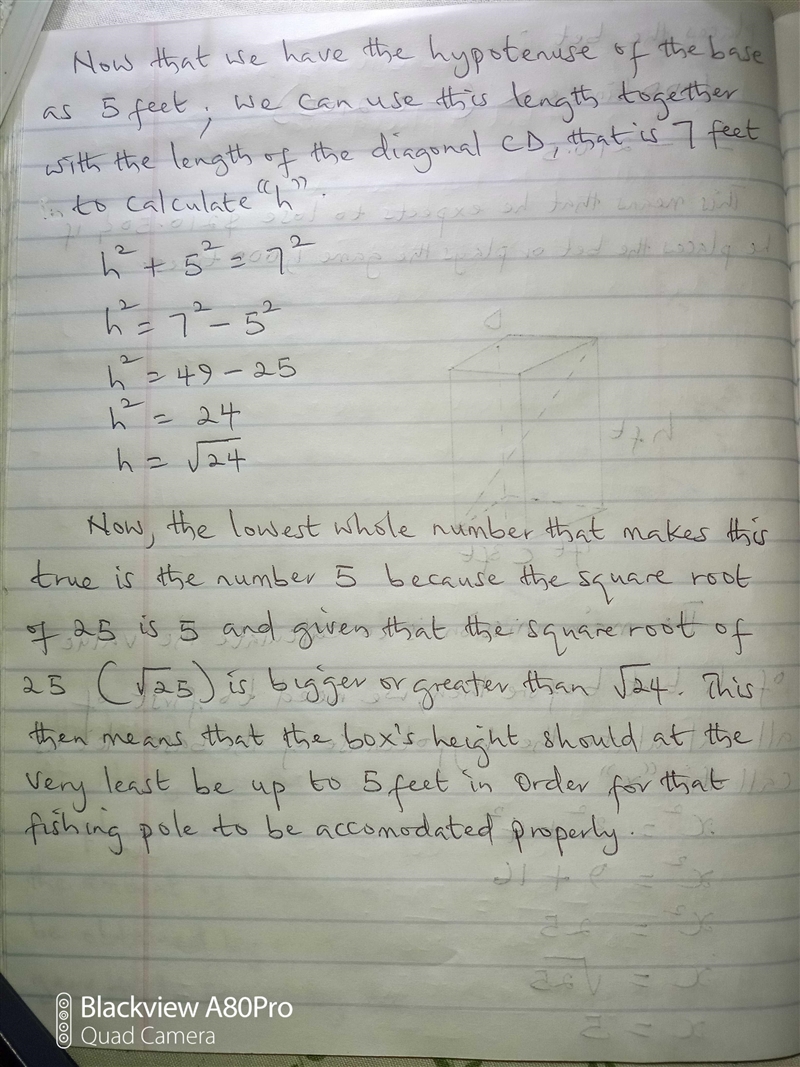 Now that we have the hypotenuse of the base
as 5 feet; we can use this length together
with the length of the diagonal CD, that is 7 feet
to calculate "h".
h² + 5² = 7²
h² = 7² - 5²
h² = 49 - 25
h² = 24
h = √24
Now, the lowest whole number that makes this
true is the number 5 because the square root
of 25 is 5 and given that the square root of
25 (√25) is bigger or greater than √24. This
then means that the box's height should at the
very least be up to 5 feet in order for that
fishing pole to be accomodated properly.
x² = 9 + 16
x² = 25
x = √25
x = 5
Blackview A80Pro
Quad Camera